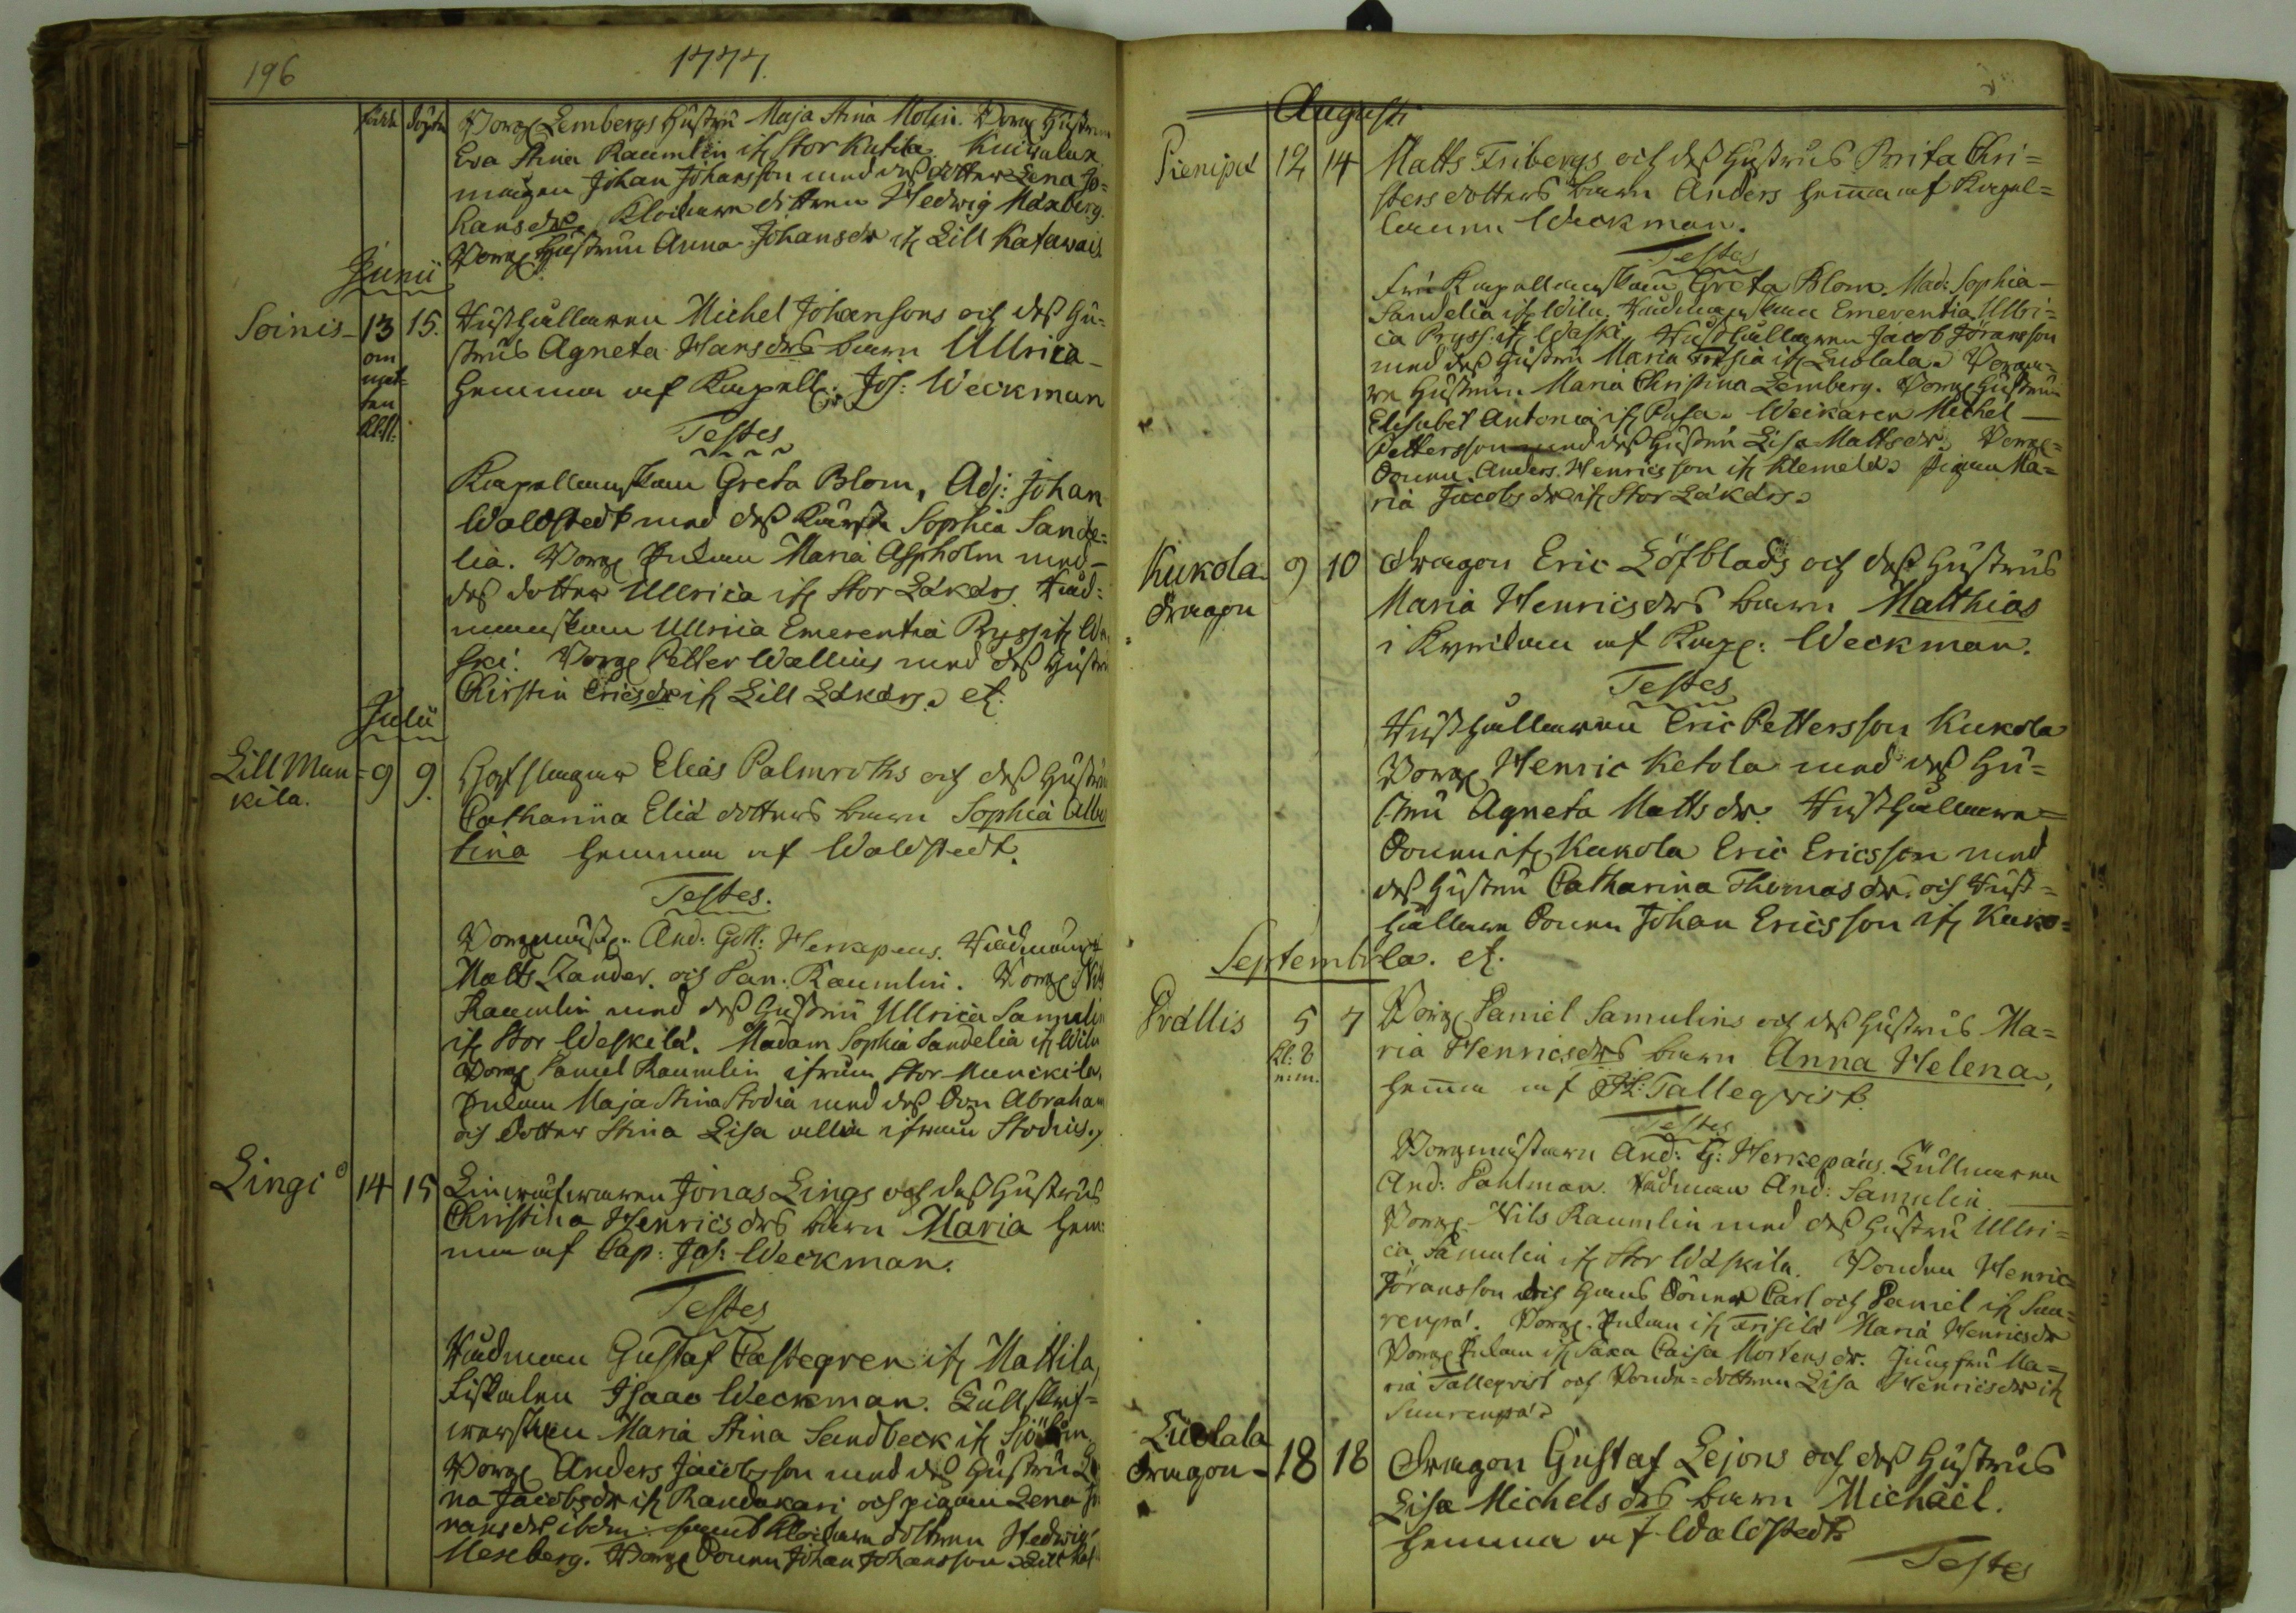 196
1777.
födde döpte Borg: Lembergs Hustru Maja Stina Molin. Borg: Hustrun
Eva Stina Raumlin if: Stor Kutila
Johan Johansson med dess dotter Lena Jo=
hansdr. Klockare dottren Hedwig Mexberg.
Borg: Hustrun Anna Johansdr if: Lill Katawais
Junii
Soinis 13 15. Hushållaren Michel Johansons och dess Hu=
om strus Agneta Hansdrs barn Ullrica
nat= hemma af Kapell: Joh: Weckman
ten
Testes
Kapellanskan Greta Blom, Adj: Johan
Waldstedt med dess Käresta Sophia Sande=
lia. Borg: Enkan Maria Aspholm med
dess dotter Ullrica if: Stor Läkärs. Nämd=
manskan Ullrica Emerentia Ryss if: Wa
ski. Borg: Petter Wallius med dess Hustru
Christin Ericsdr if: Lill Läkärs. etc.
Julii
Lill Mun= 9 9. Hofslagar Elias Palmroths och dess Hustru
kila. Catharina Eliæ dotters barn Sophia Albe
tina hemma af Waldstedt.
Testes.
Borgmäst: And: Gott: Herkepæus. Rådmän
Matts Zander. och Dan. Raumlin. Borg: Nils
Raumlin med dess Hustru Ullrica Samuli
if: Stor Weskilä. Madam Sophia Sandelia if: Wilu
Borg: Daniel Raumlin ifrån Stor Munckila,
Enkan Maja Stina Stodia med dess Son Abraham
och Dotter Stina Lisa alla ifrån Stodius.
Lingi 14 15 Jonas Lings och dess Hustrus
Christina Henricsdrs barn Maria hem:
ma af Cap: Joh: Weckman.
Testes
Rådman Gustaf Castegren if: Mattila,
Fiskalen Isaac Weckman.
Maria Stina Sandbeck if:
Borg: Anders Jacobsson med dess Hustru Le
na Jacobsdr if: Randakari och pigan Lena Jo
hansdr ibdm samt Klockare dottren Hedwig
Mexberg. Borg: Sonen Johan Johansson Lill Kat
Augusti
Pienipä 12 14 Matts Fribergs och dess Hustrus Brita Chri=
sters dotters barn Anders hemma af Kapel=
lanen Weckman.
Testes
Fru Kapellanskan Greta Blom. Mad: Sophia
Sandelia if: Wilu. Nämdemanskan Emerentia Ullri=
ca Ryss if: Waski. Hushållaren Jacob Jöransson
med dess Hustru Maria if: Luolala. Borga=
re Hustrun Maria Christina Lemberg. Borg: Hustrun
Elisabet Antonia if: Pasa. Wäckaren Michel
Pettersson med dess Hustru Lisa Mattsdr. Borg:
Sonen Anders Henricsson if: Klemelä. Pigan Ma=
ria Jacobsdr if: Stor Läkärs.
Kukola 9 10 Dragon Eric Löfblads och dess Hustrus
Dragon Maria Henricsdrs barn Matthias
i Kyrckan af Kapp: Weckman.
Testes
Hushållaren Eric Pettersson Kukola
Borg: Henric Ketola med dess Hu=
stru Agneta Mattsdr. Hushållare=
Sonen if: Kukola Eric Ericsson med
dess Hustru Catharina Thomasdr. och Hus=
hållare Sonen Johan Ericsson if: Kuko=
Septemb: la. etc.
Prällis 5 7 Borg: Daniel Samulins och dess Hustrus Ma=
kl: 8 ria Henricsdrs barn Anna Helena,
m.m. hemma af Tallegvist.
Testes
Borgmästaren And: G: Herkepæus. Tullnaren
And: Dahlman. Rådman And: Samulin.
Borg: Nils Raumlin med dess Hustru Ullri=
ca Samulin if: Stor Wäskila. Bonden Henric
Jöransson och hans Söner Carl och Daniel if: Suu=
renpä. Borg: Enkan if: Frisilä Maria Henricsdr
Borg: Enkan if: Saxa Caisa Mortensdr. Jungfru Ma=
ria Tallegvist och Bonde=dottren Lisa Henricsdr if:
Suurenpä
Luolala
Dragon 18 18 Dragon Gustaf Lejons och dess Hustrus
Lisa Michelsdrs barn Michaël.
hemma af Waldstedt
Testes